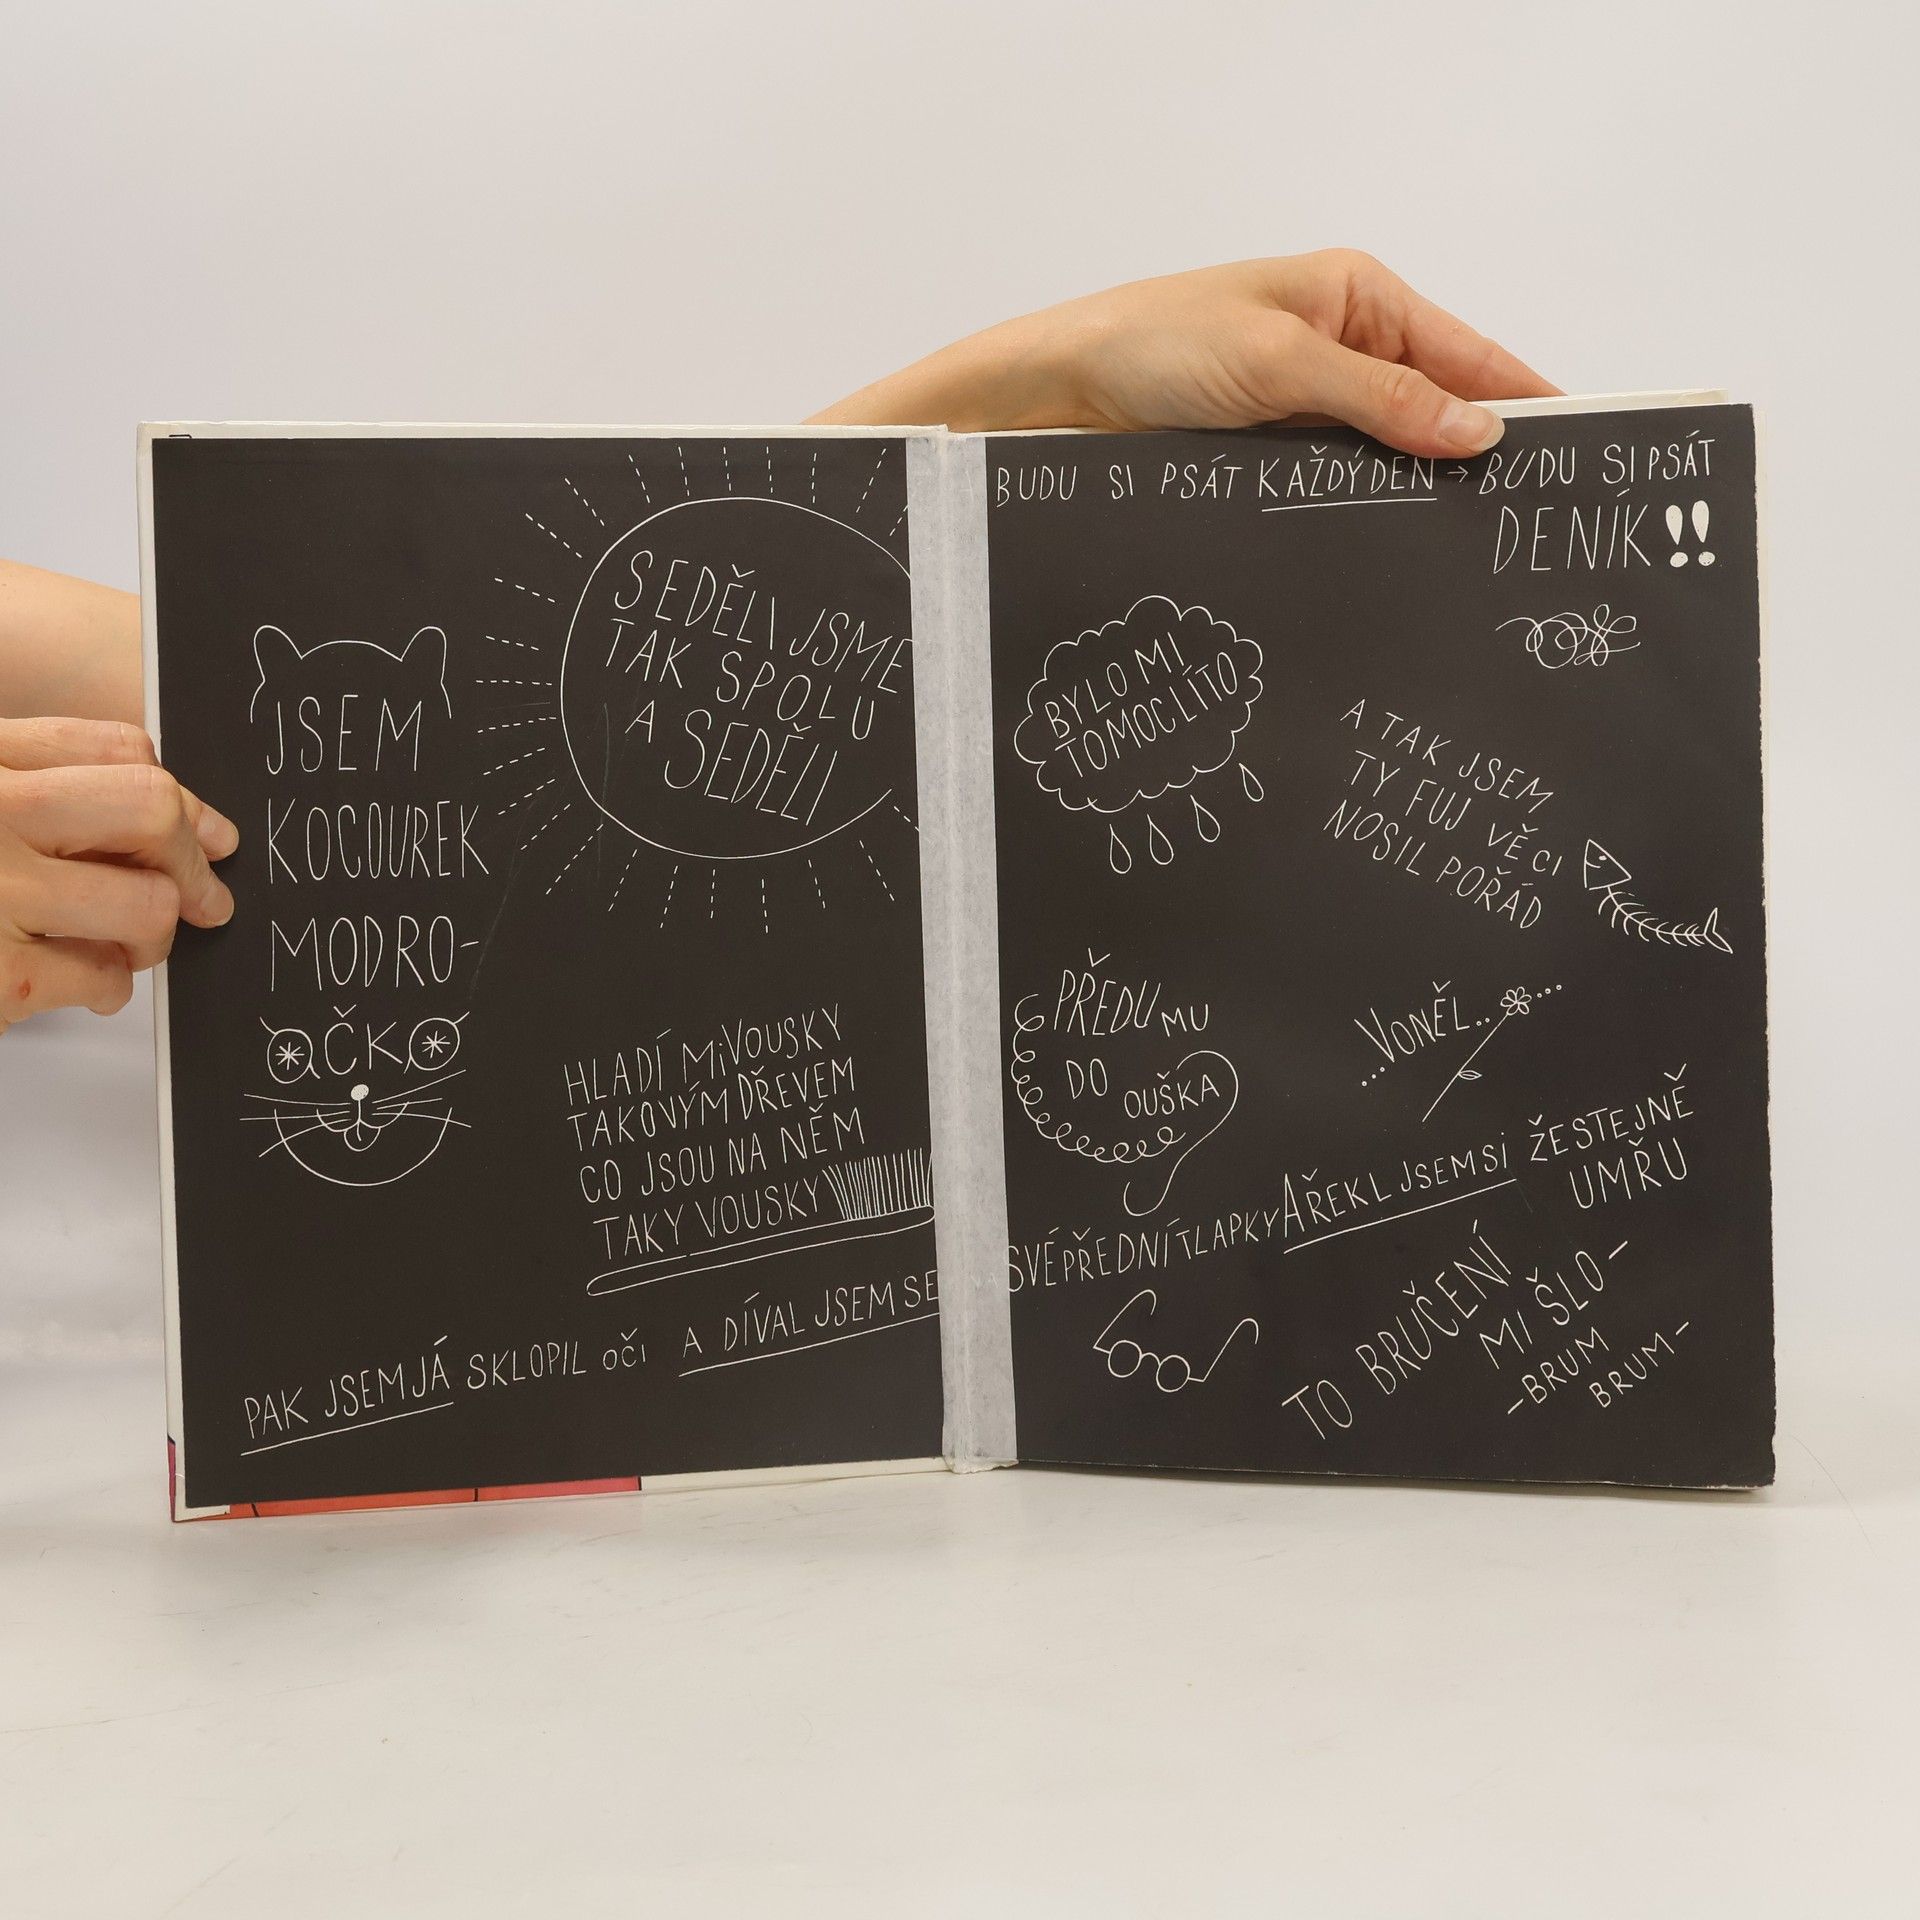 JSEM
KOCOUREK
MODRO-
OČKO
SEDĚLI JSME
TAK SPOLU
A SEDĚLI
HLADÍ MI VOUSKY
TAKOVÝM DŘEVEM
CO JSOU NA NĚM
TAKY VOUSKY
PAK JSEM JÁ SKLOPIL OČI A DÍVAL JSEM SE NA SVÉ PŘEDNÍ TLAPKY A ŘEKL JSEM SI ŽE STEJNĚ
UMŘU
BUDU SI PSÁT KAŽDÝ DEN → BUDU SI PSÁT
DENÍK!!
BYLO MI
TOMOC LÍTO
A TAK JSEM
TY FUJ VĚCI
NOSIL POŘÁD
PŘEDU MU
DO
OUŠKA
....VONĚL.. ...
TO BRUČENÍ
MI ŠLO-
-BRUM
BRUM-